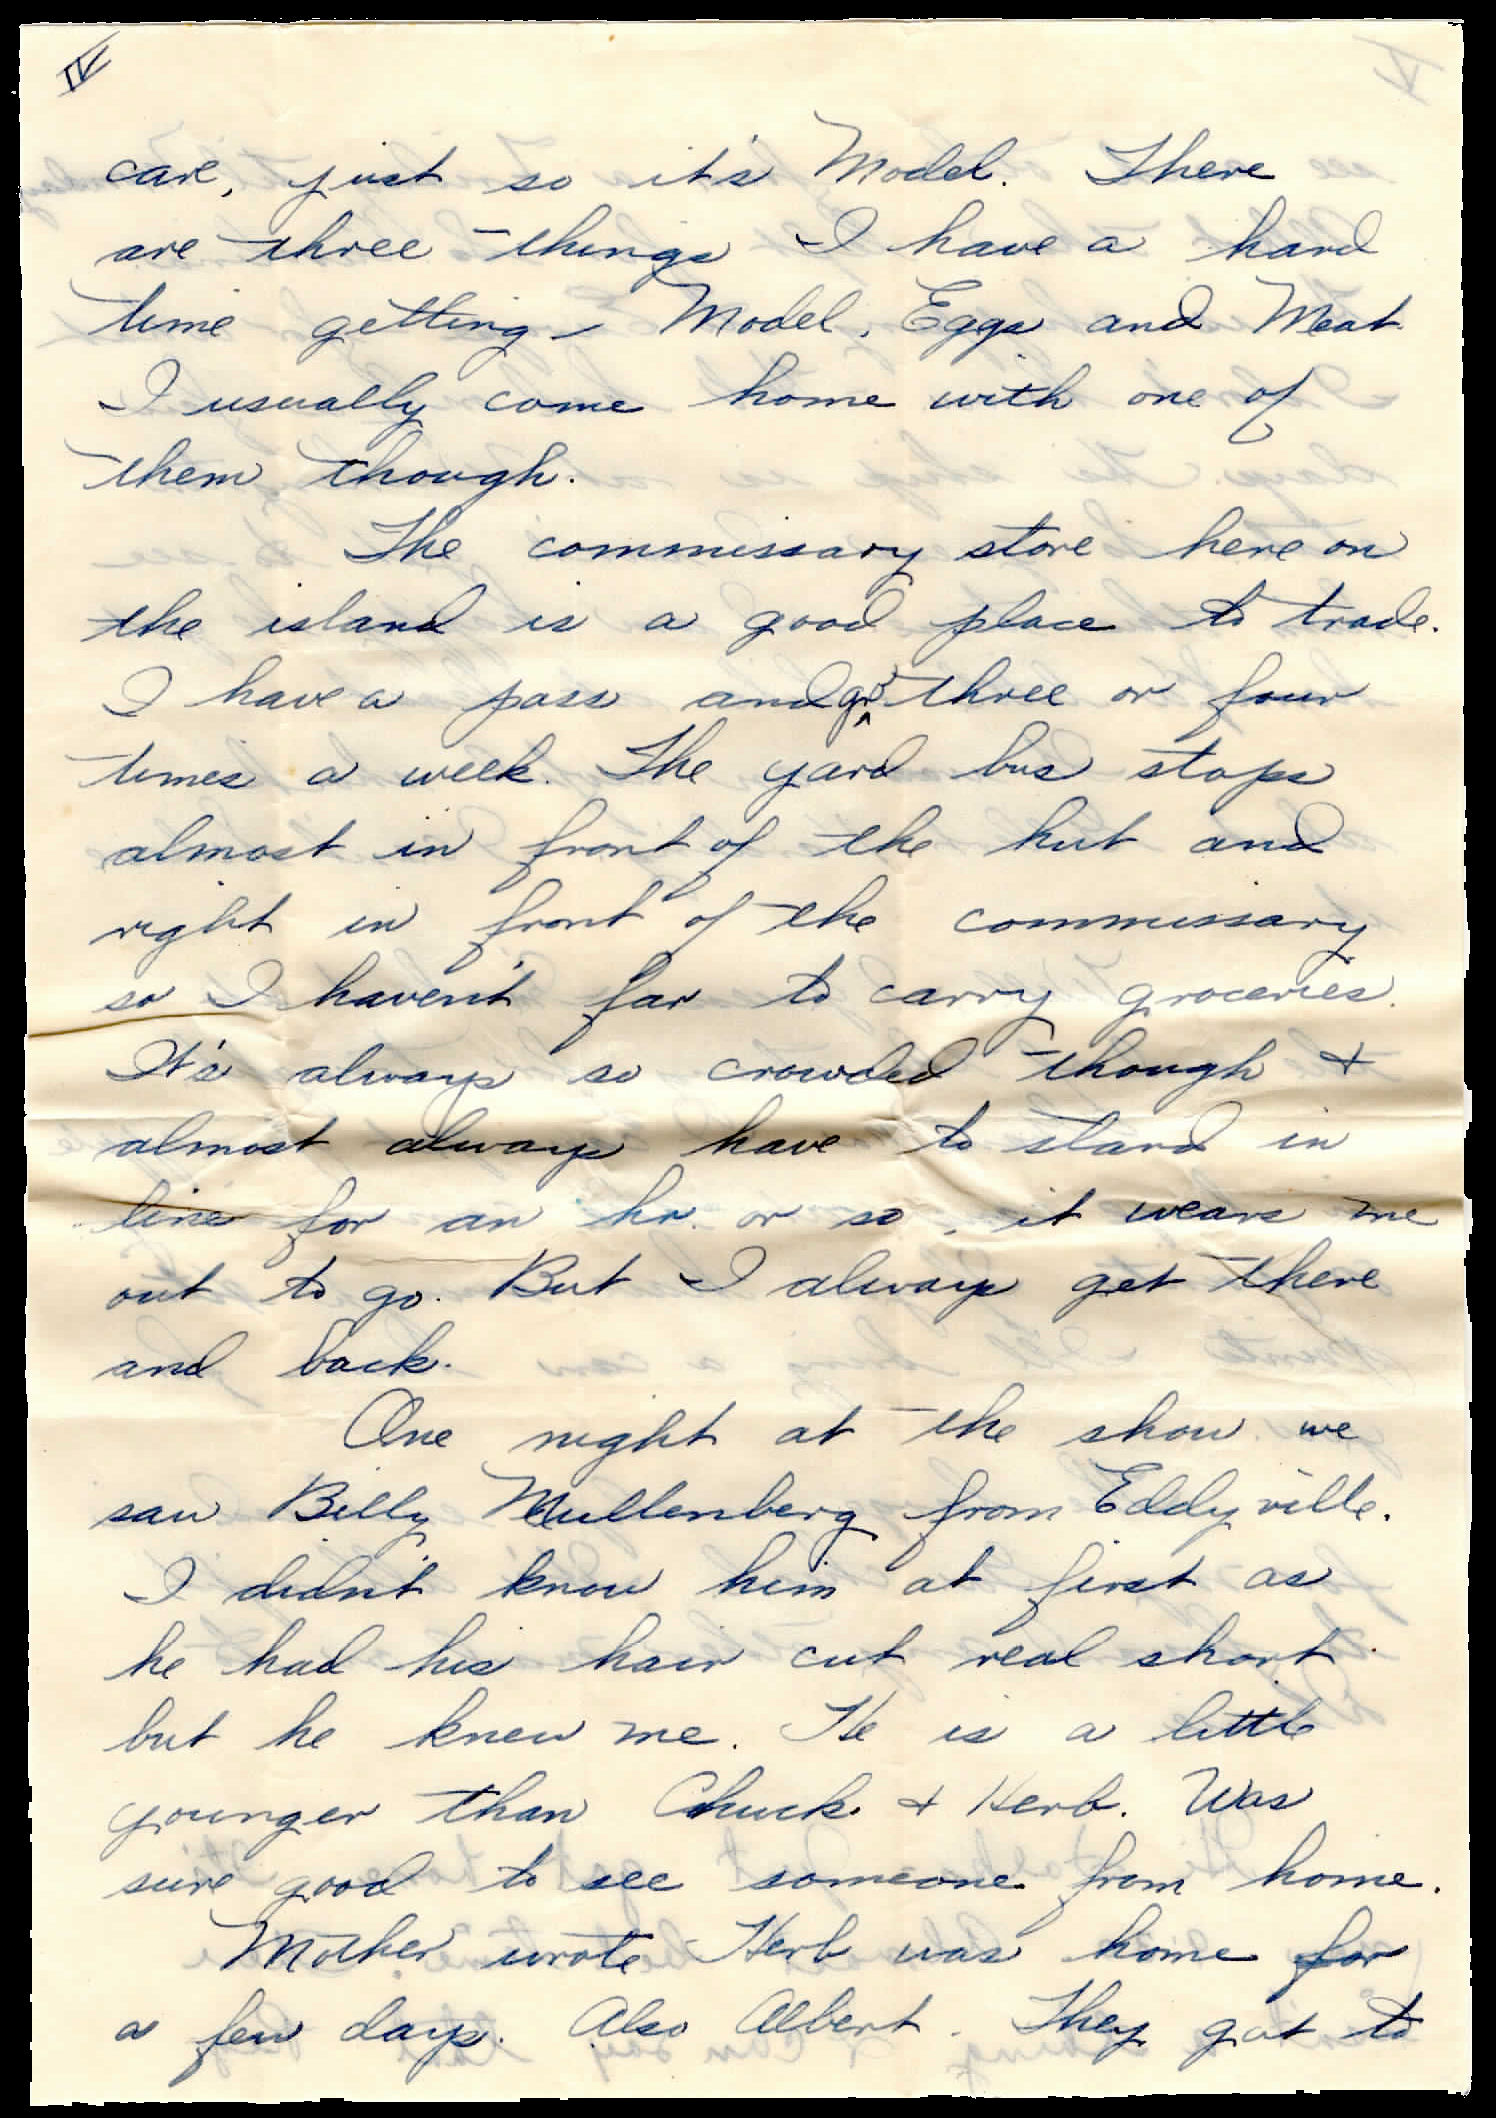 IV
care, just so it's Model. There
are three things I have a hard
time getting - Model, Eggs and Meat.
I usually come home with one of
them though.
The commissary store here on
the island is a good place to trade.
I have a pass and go three or four
times a week. The yard bus stops
almost in front of the hut and
right in front of the commissary
so I haven't far to carry groceries.
It's always so crowded though &
almost always have to stand in
line for an hr. or so, it wears me
out to go. But I always get there
and back.
One night at the show we
saw Billy Mullenberg from Eddyville.
I didn't know him at first as
he had his hair cut real short
but he knew me. He is a little
younger than Chuck & Herb. Was
sure good to see someone from home.
Mother wrote Herb was home for
a few days. Also Albert. They got to